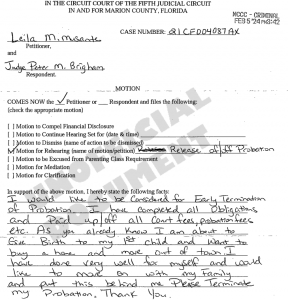 IN THE CIRCUIT COURT OF THE FIFTH JUDICIAL CIRCUIT
IN AND FOR MARION COUNTY, FLORIDA
MCCC - CRIMINAL
FEB 5 '24 PM3:42
CASE NUMBER: 21CFD04087AX
Leila M. Musante
Petitioner,
and
Judge Peter M. Brigham
Respondent.
MOTION
COMES NOW the ✓ Petitioner or ___ Respondent and files the following:
(check the appropriate motion)
[ ] Motion to Compel Financial Disclosure
[ ] Motion to Continue Hearing Set for (date & time)
[ ] Motion to Dismiss (name of action to be dismissed)
[✓] Motion for Rehearing (name of motion/petition) Release of/off Probation
[ ] Motion to be Excused from Parenting Class Requirement
[ ] Motion for Mediation
[ ] Motion for Clarification
In support of the above motion, I hereby state the following facts:
I would like to be Considered for Early Termination
of Probation. I have Completed all Obligations
and Paid up/off all Court fees, probation fees
etc. As you already Know I am about to
Give Birth to my 1st Child and Want to
buy a home and move out of town. I
have done very well for myself and would
like to move on with my Family
and put this behind me. Please Terminate
my Probation, Thank You.
UNOFFICIAL
DOCUMENT